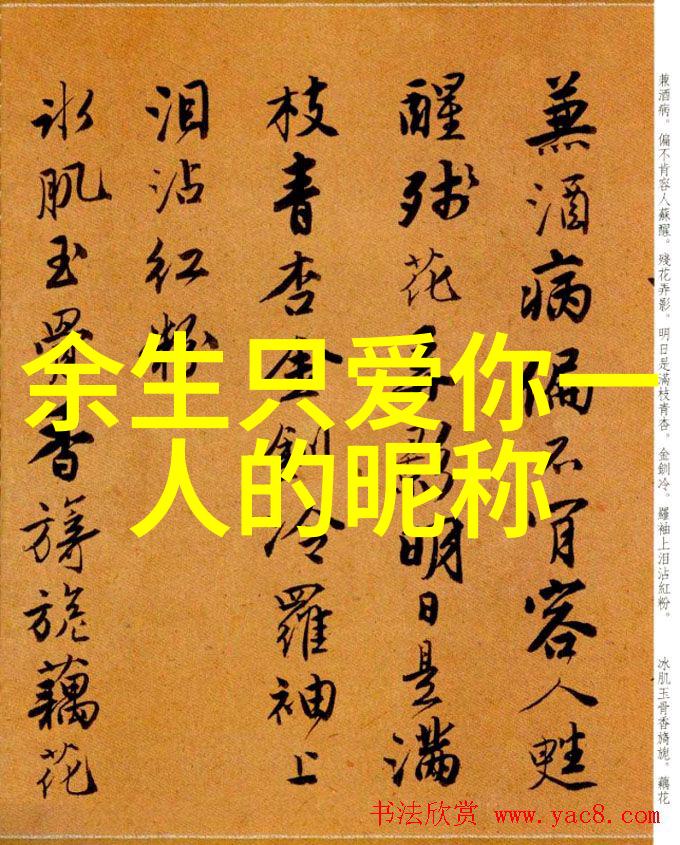 兼酒病偏不肯容人甦
醒残花弄影明日是满
枝青杏金釧冷羅袖上
泪沾红粉
冰肌玉骨香旖旎藕花
兼酒病。偏不肯容人蘇醒。殘花弄影。明日是滿枝青杏。金釧冷。羅袖上泪沾紅粉。
冰肌玉骨香旖旎。藕花
余生只爱你一
人的昵称
书法欣赏 www.yac8.com